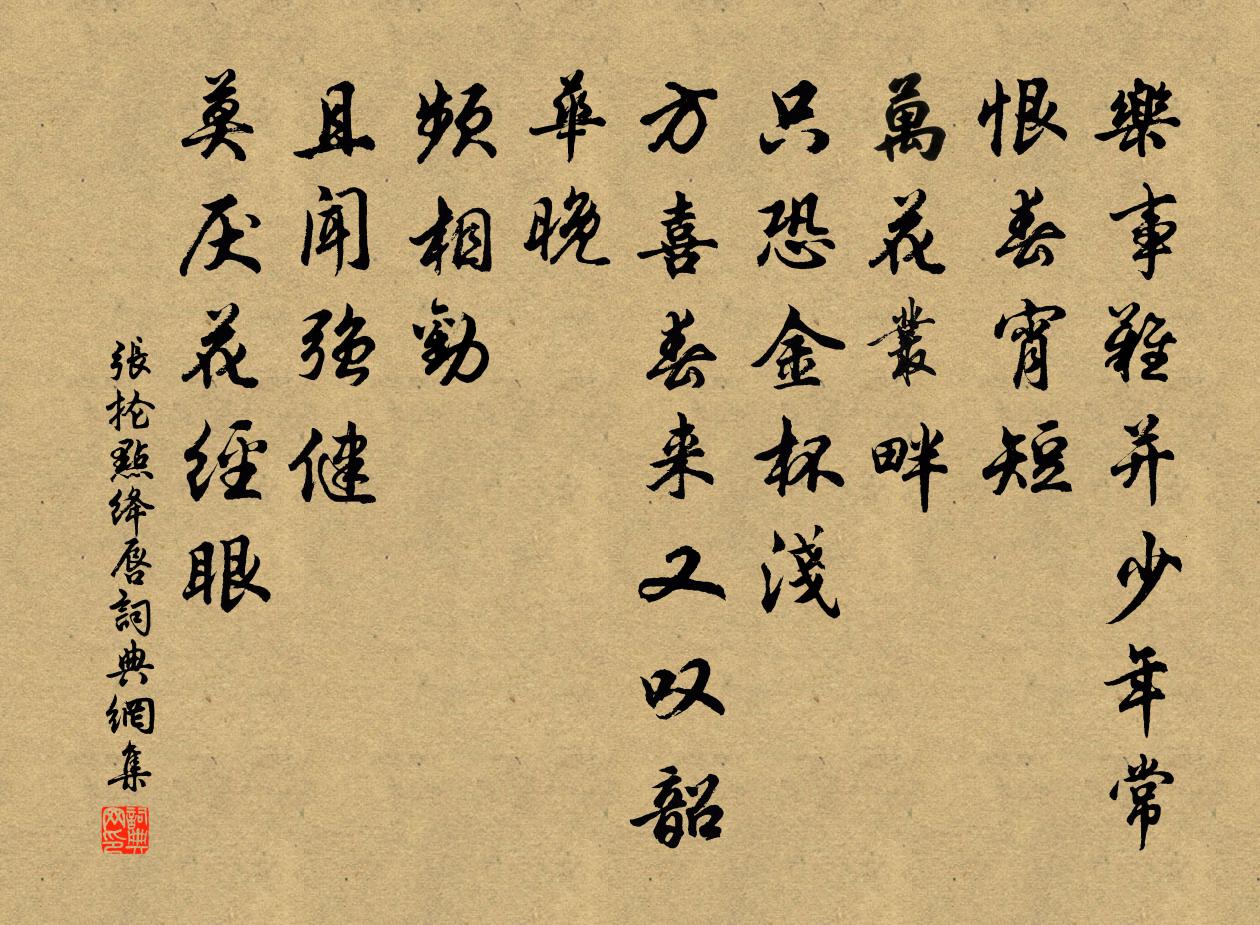 樂事難并少年常
恨春宵短
萬花叢畔
只恐金杯淺
方喜春来又叹韶
華晚
頻相勸
且聞强健
莫厌花經眼
張抡點绛唇詞典網集
詞典网印